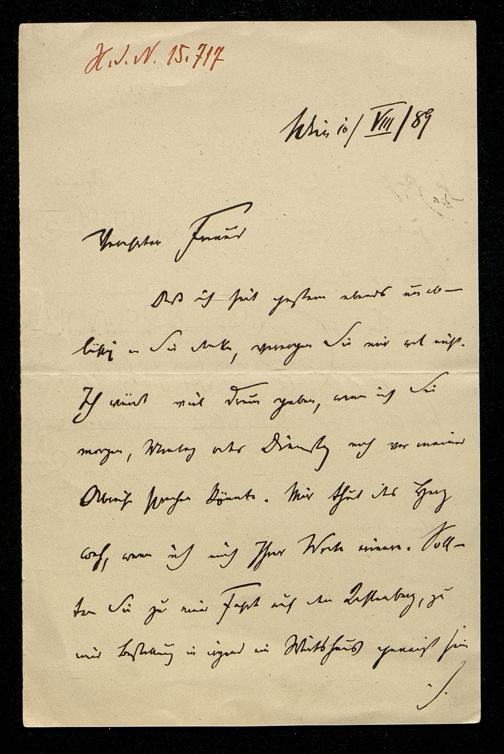 H.I.N. 15.717
Wien 10/VIII/89
Verehrter Freund
Daß ich seit gestern abends unab-
lässig an Sie denke, werden Sie mir wol
Ich würde viel drum geben, wenn ich Sie
morgen, Montag oder Dienstag noch vor meiner
Abreise sprechen könnte. Mir thut das Herz
weh, wenn ich mich Ihrer Worte erinnere. Soll-
ten Sie zu einer Fahrt auf den Kahlenberg, zu
einer Bestellung in irgend ein Wirtshaus geneigt sein